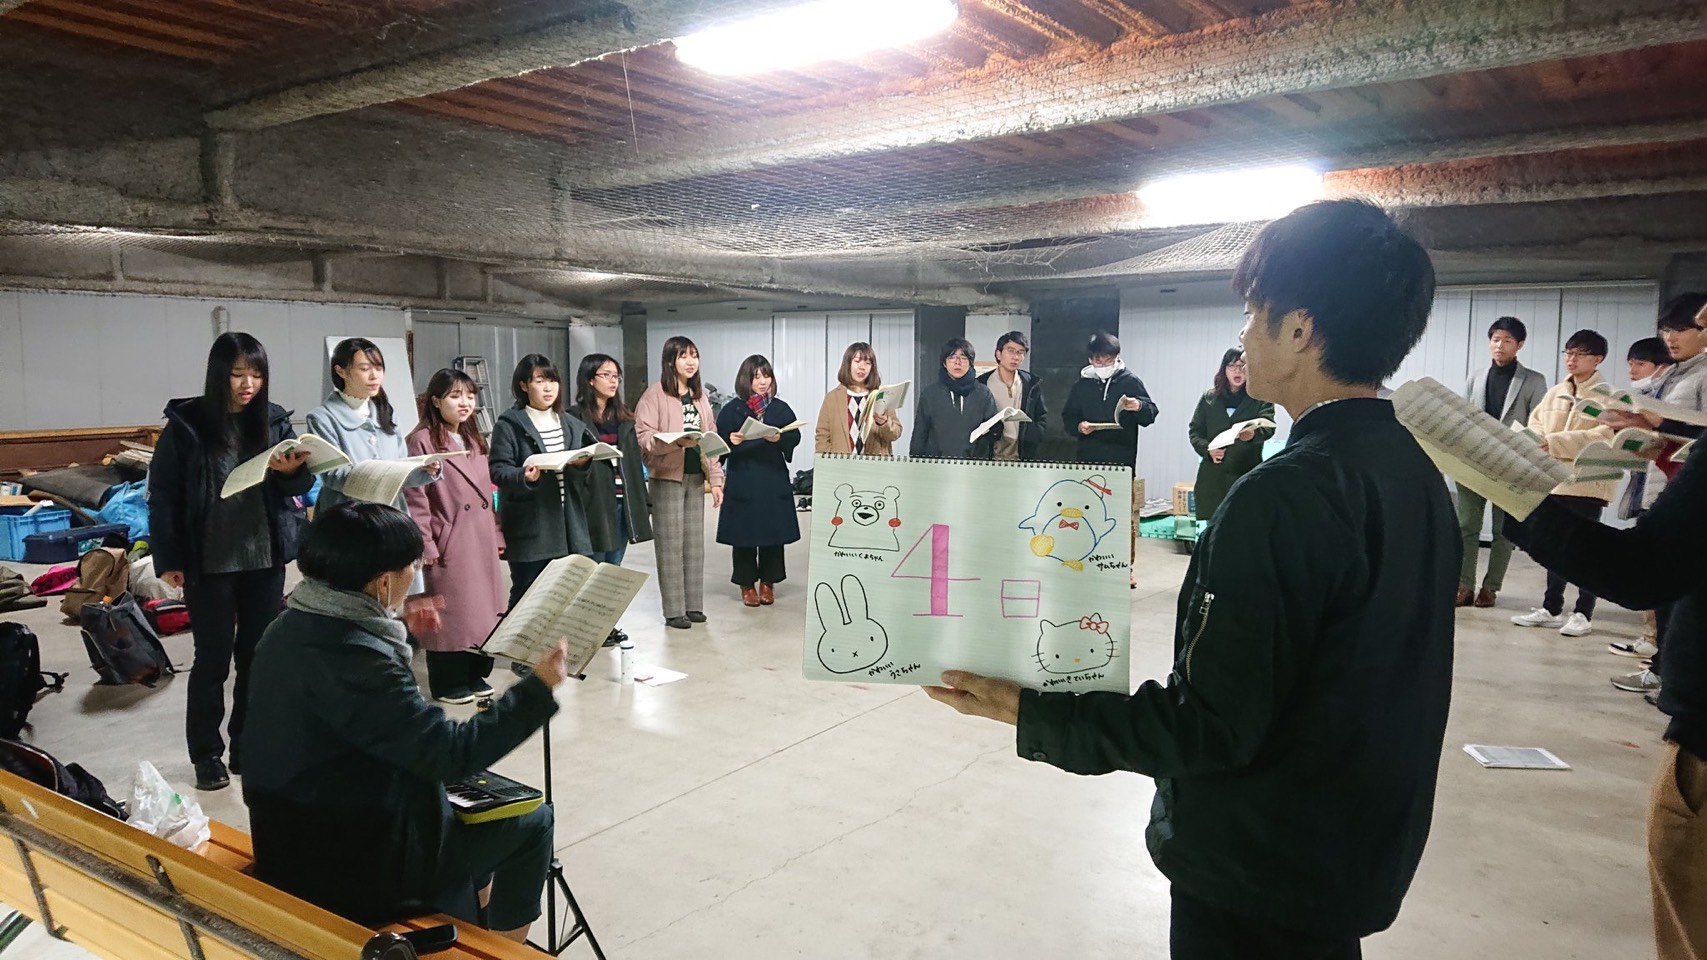 かわいいくまちゃん
4日
かわいい
サムちゃん
かわいい
うさちゃん
かわいいきてぃちゃん